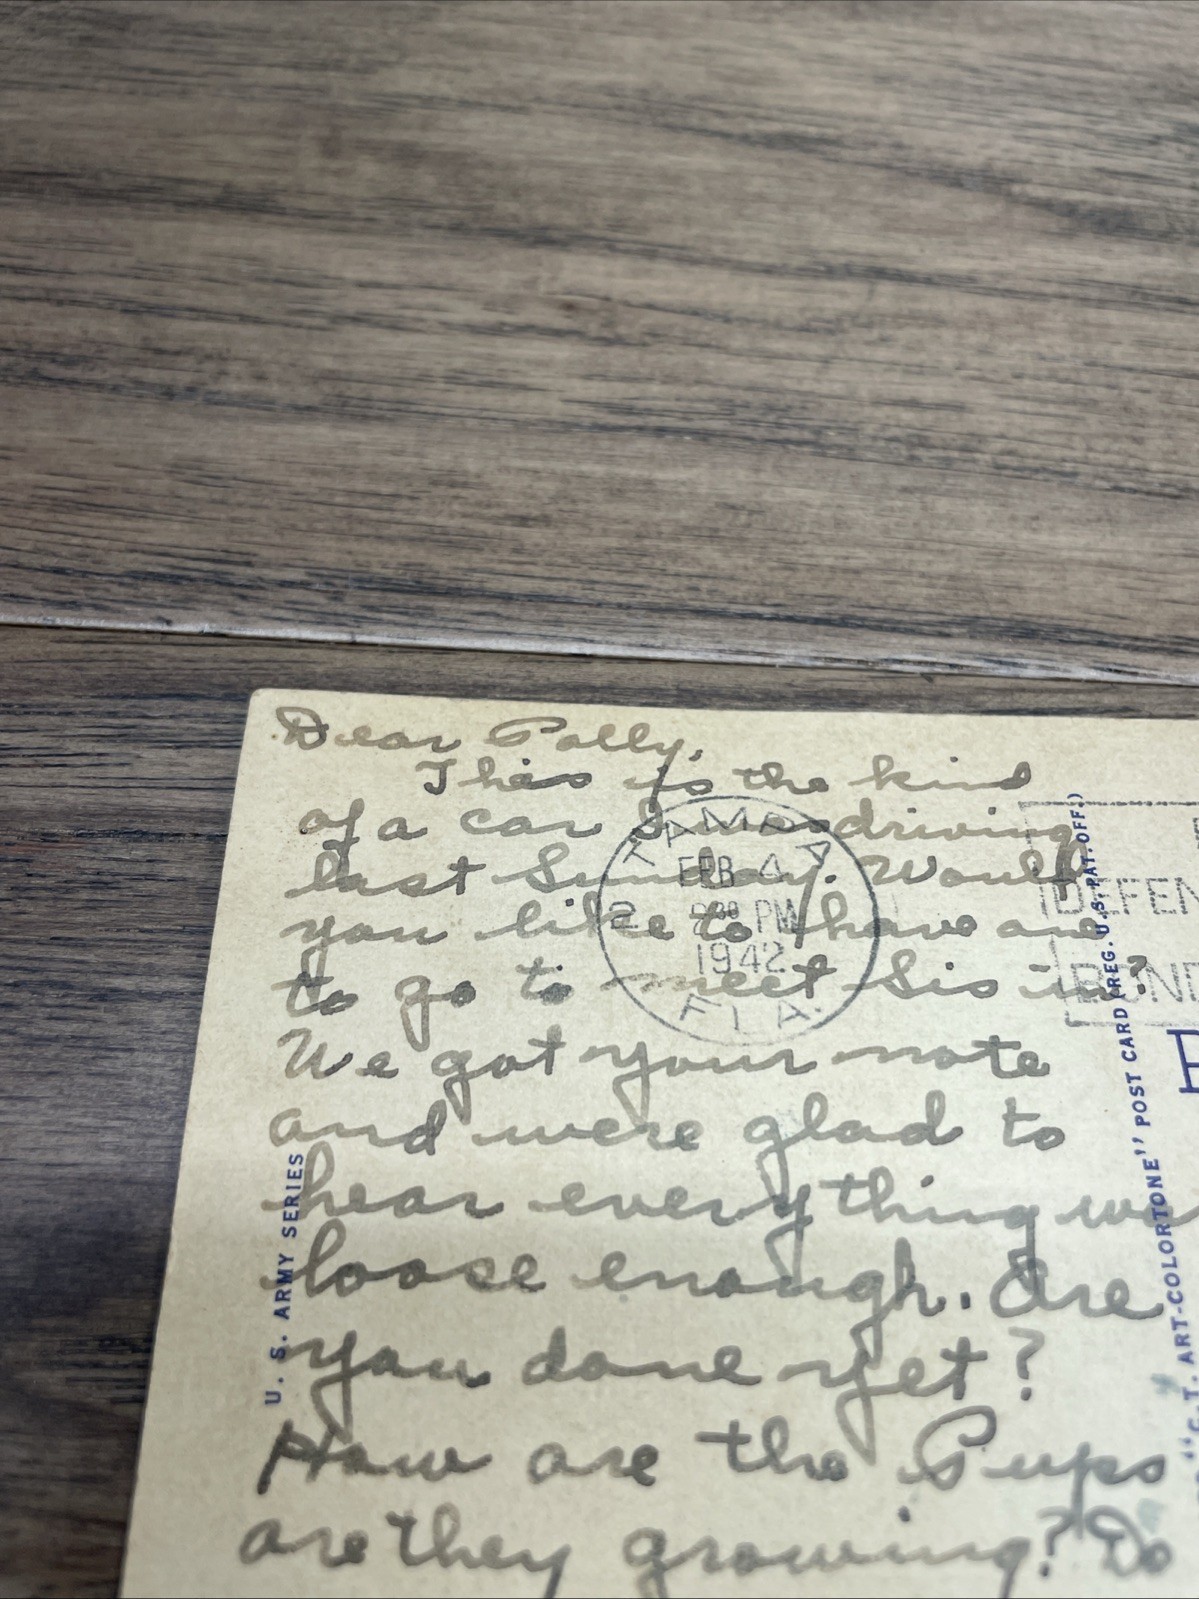 Dear Polly,
This is the kind
of a car I was driving
last Sunday. Would
you like to have one
to go to meet Sis in?
We got your note
and were glad to
hear everything was
loose enough. Are
you done yet?
How are the Pups
are they growing? Do
TAMPA
FEB 4
PM
1942
FLA.
DEFEN
BOND
U. S. ARMY SERIES
"C. T. ART-COLORTONE" POST CARD (REG. U. S. PAT. OFF.)